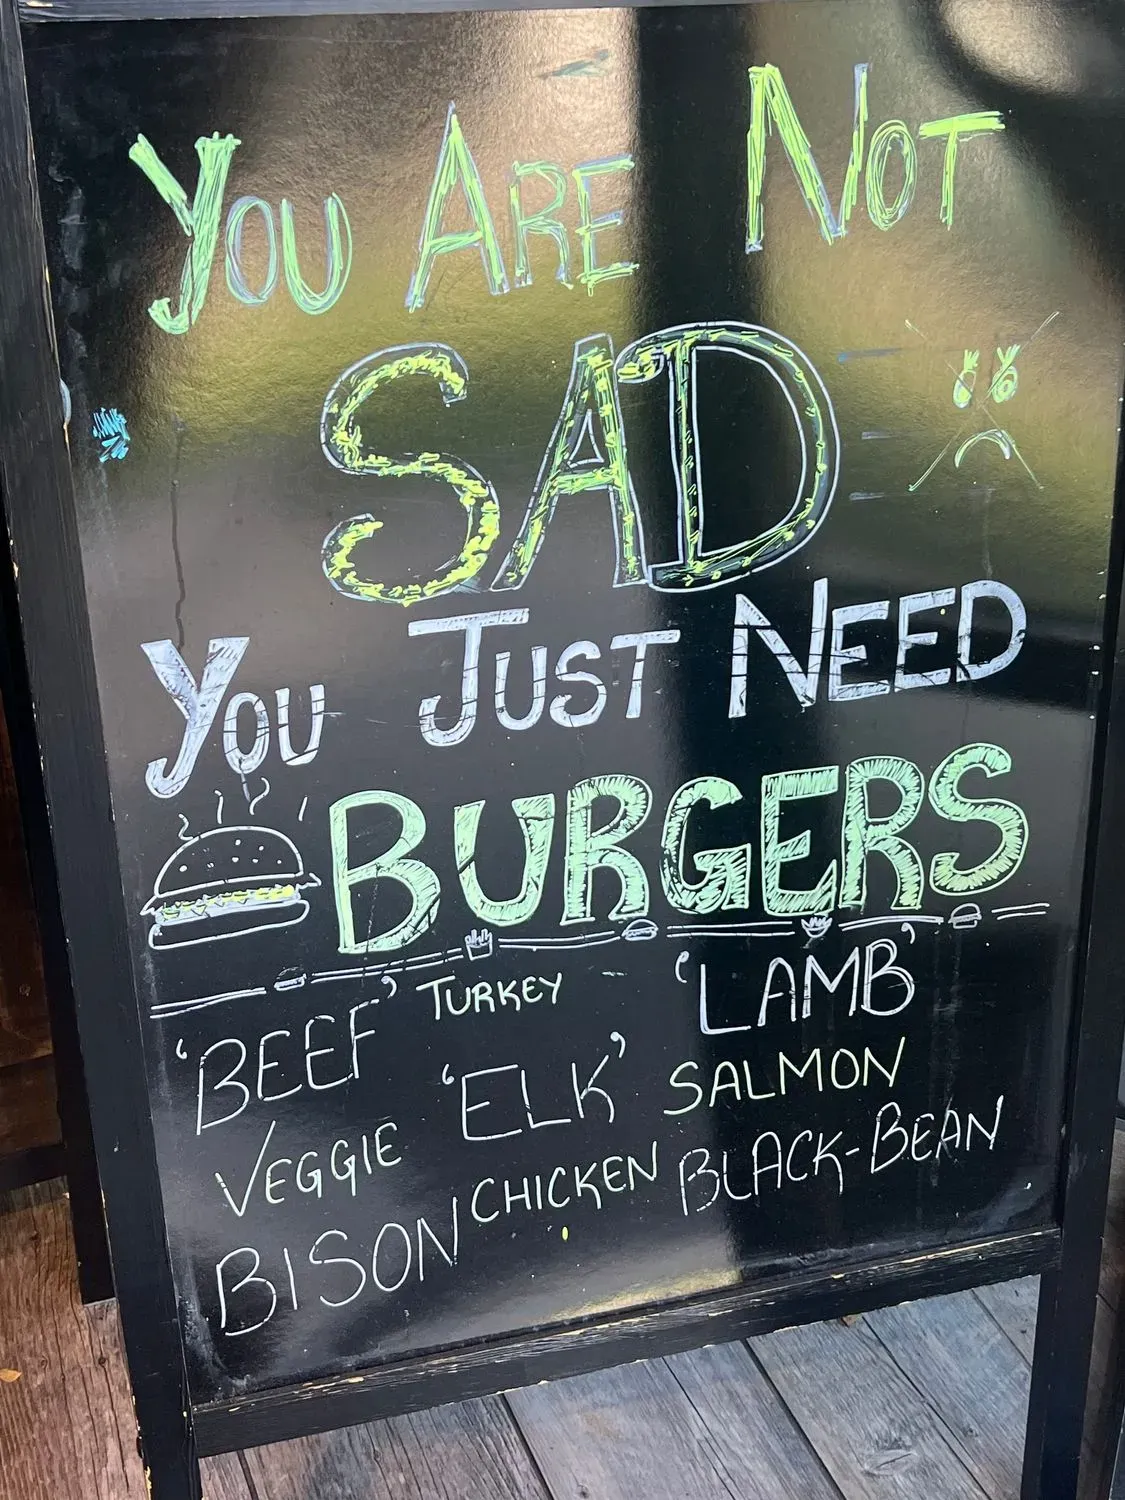 You Are Not
SAD
You Just Need
BURGERS
'BEEF' TURKEY 'LAMB'
VEGGIE 'ELK' SALMON
BISON CHICKEN BLACK-BEAN